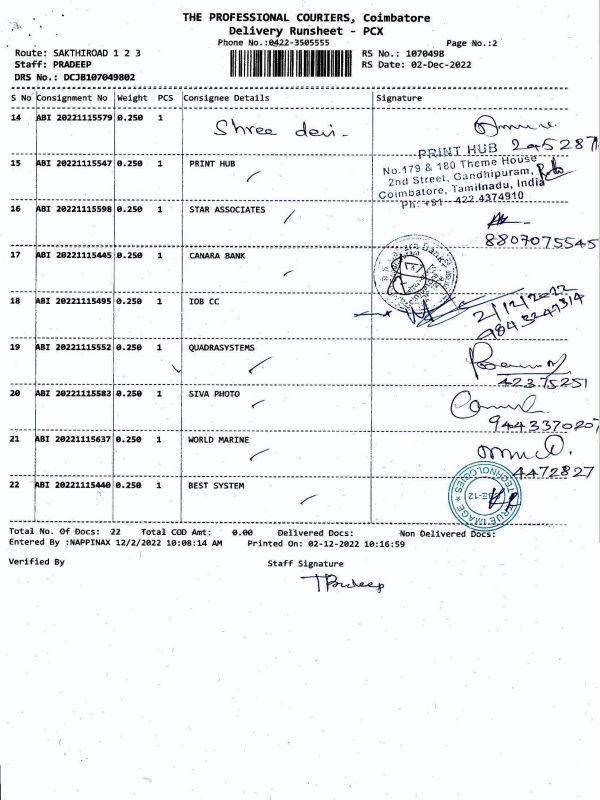 THE PROFESSIONAL COURIERS, Coimbatore
Delivery Runsheet - PCX
Phone No.:0422-3505555 Page No.:2
Route: SAKTHIROAD 1 2 3 RS No.: 1070498
Staff: PRADEEP RS Date: 02-Dec-2022
DRS No.: DCJB107049802
S No Consignment No Weight PCS Consignee Details Signature
14 ABI 20221115579 0.250 1 Shree devi-
245287
15 ABI 20221115547 0.250 1 PRINT HUB
PRINT HUB
No.179 & 180 Theme House
2nd Street, Gandhipuram,
Coimbatore, Tamilnadu, India
Ph: +91 - 422 4374910
16 ABI 20221115598 0.250 1 STAR ASSOCIATES
8807075545
17 ABI 20221115445 0.250 1 CANARA BANK
18 ABI 20221115495 0.250 1 IOB CC
2/12/2022
9843247314
19 ABI 20221115552 0.250 1 QUADRASYSTEMS
42375251
20 ABI 20221115583 0.250 1 SIVA PHOTO
9443370207
21 ABI 20221115637 0.250 1 WORLD MARINE
4472827
22 ABI 20221115440 0.250 1 BEST SYSTEM
TRUE IMAGE TECHNOLOGIES
Total No. Of Docs: 22 Total COD Amt: 0.00 Delivered Docs: Non Delivered Docs:
Entered By :NAPPINAX 12/2/2022 10:08:14 AM Printed On: 02-12-2022 10:16:59
Verified By Staff Signature
TPradeep